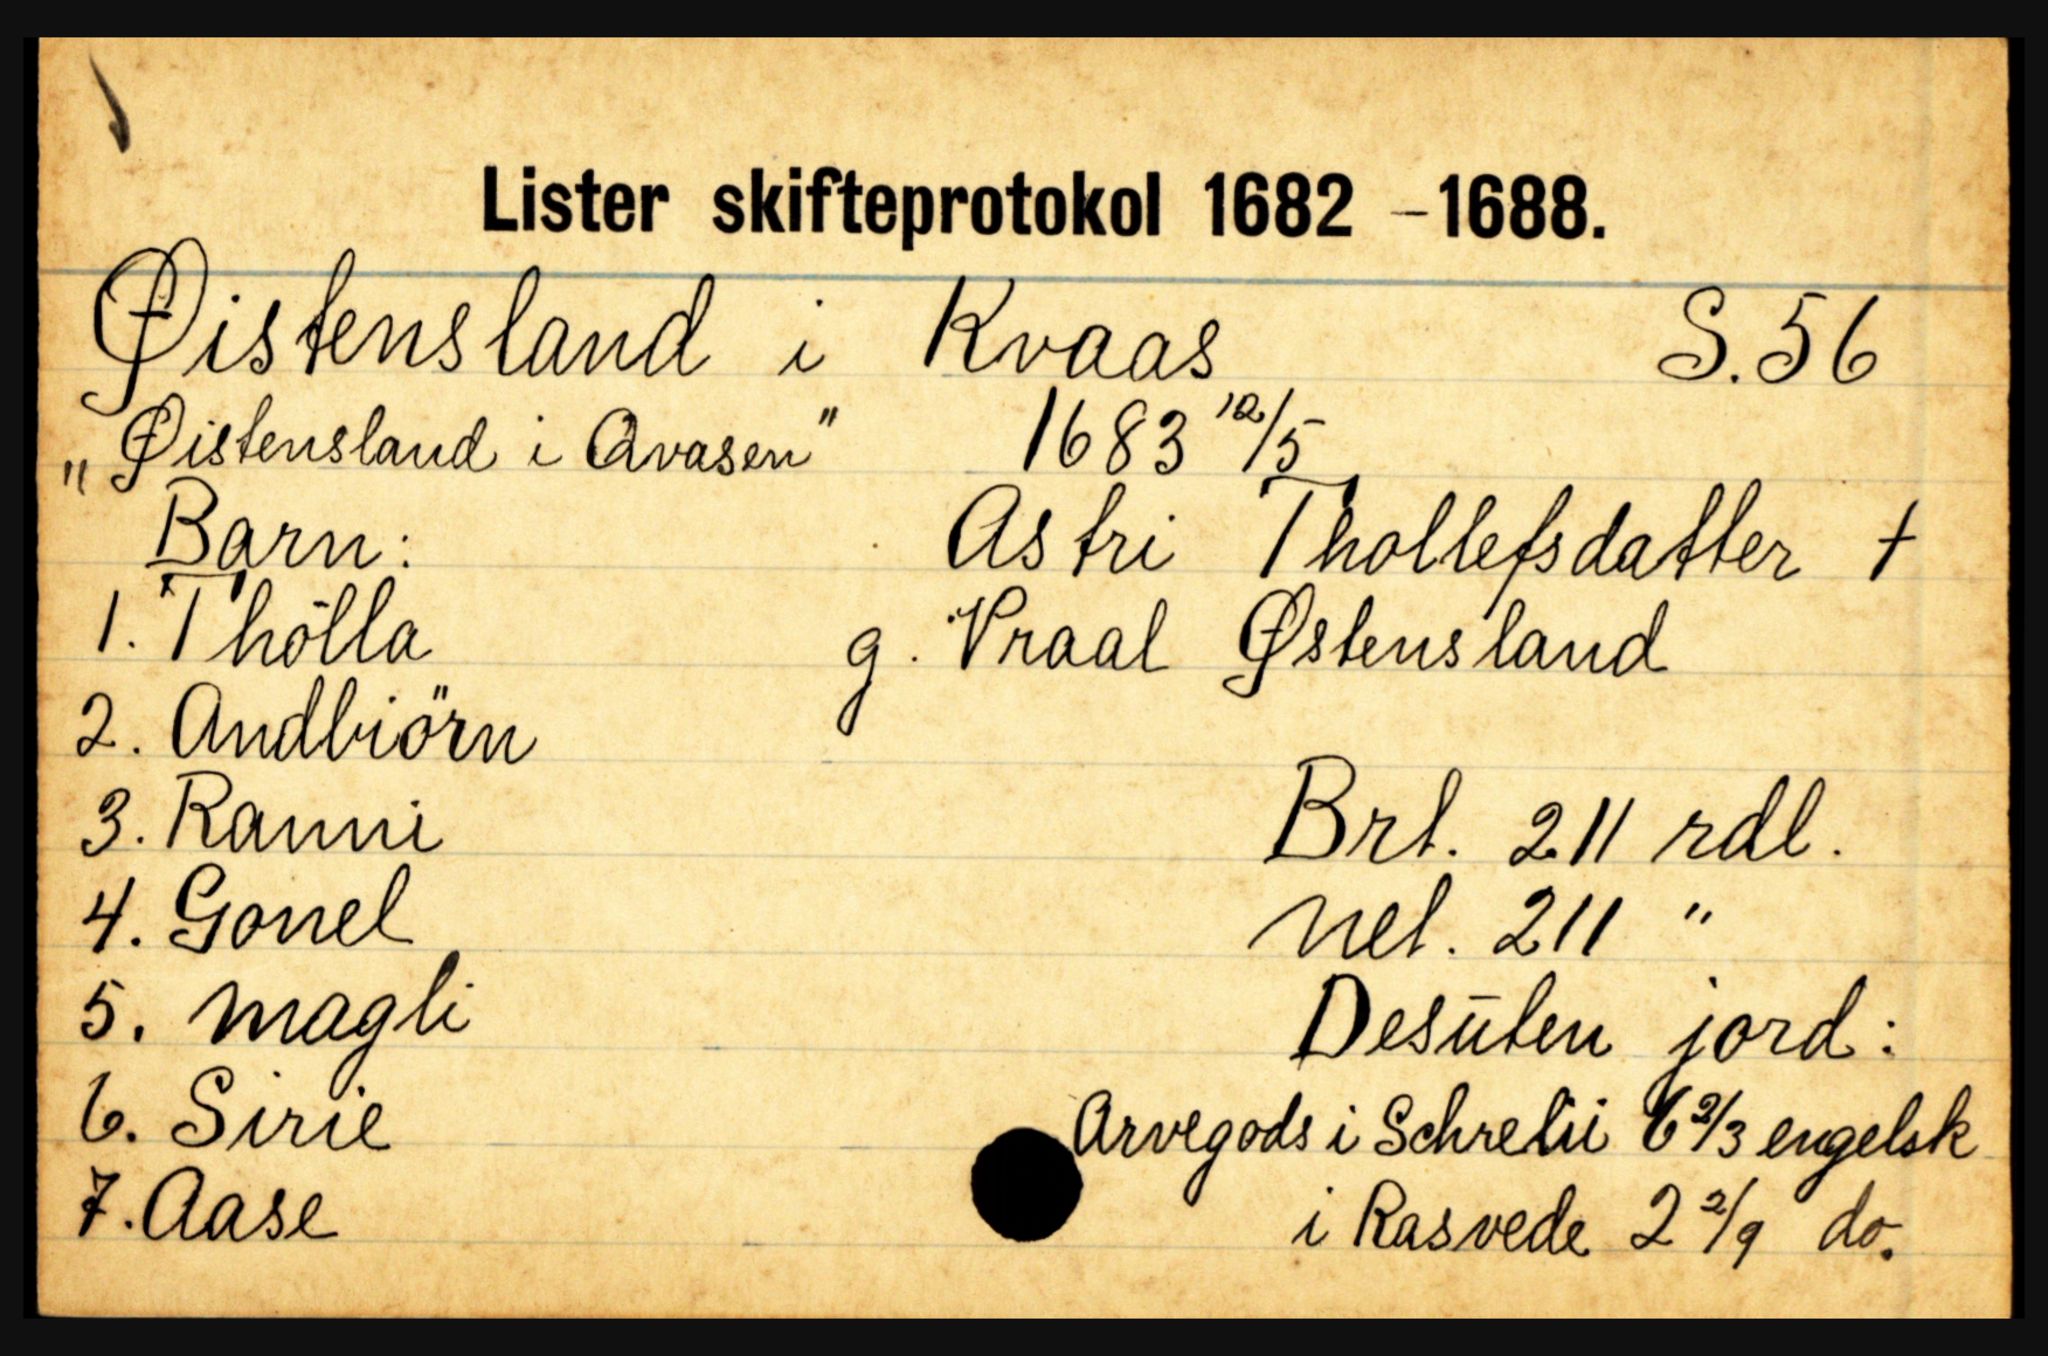 Lister skifteprotokol 1682 - 1688.
Øistensland i Kvaas S. 56
„Øistensland i Qvasen" 1683 12/5
Barn: Astri Thollefsdatter †
1. Thölla g. Vraal Østensland
2. Andbiörn
3. Ranni Brt. 211 rdl.
4. Gonel Net. 211 "
5. Magli Desūten jord:
6. Sirie Arvegods i Schrelii 6 2/3 engelsk
7. Aase i Rasvede 2 2/9 do.